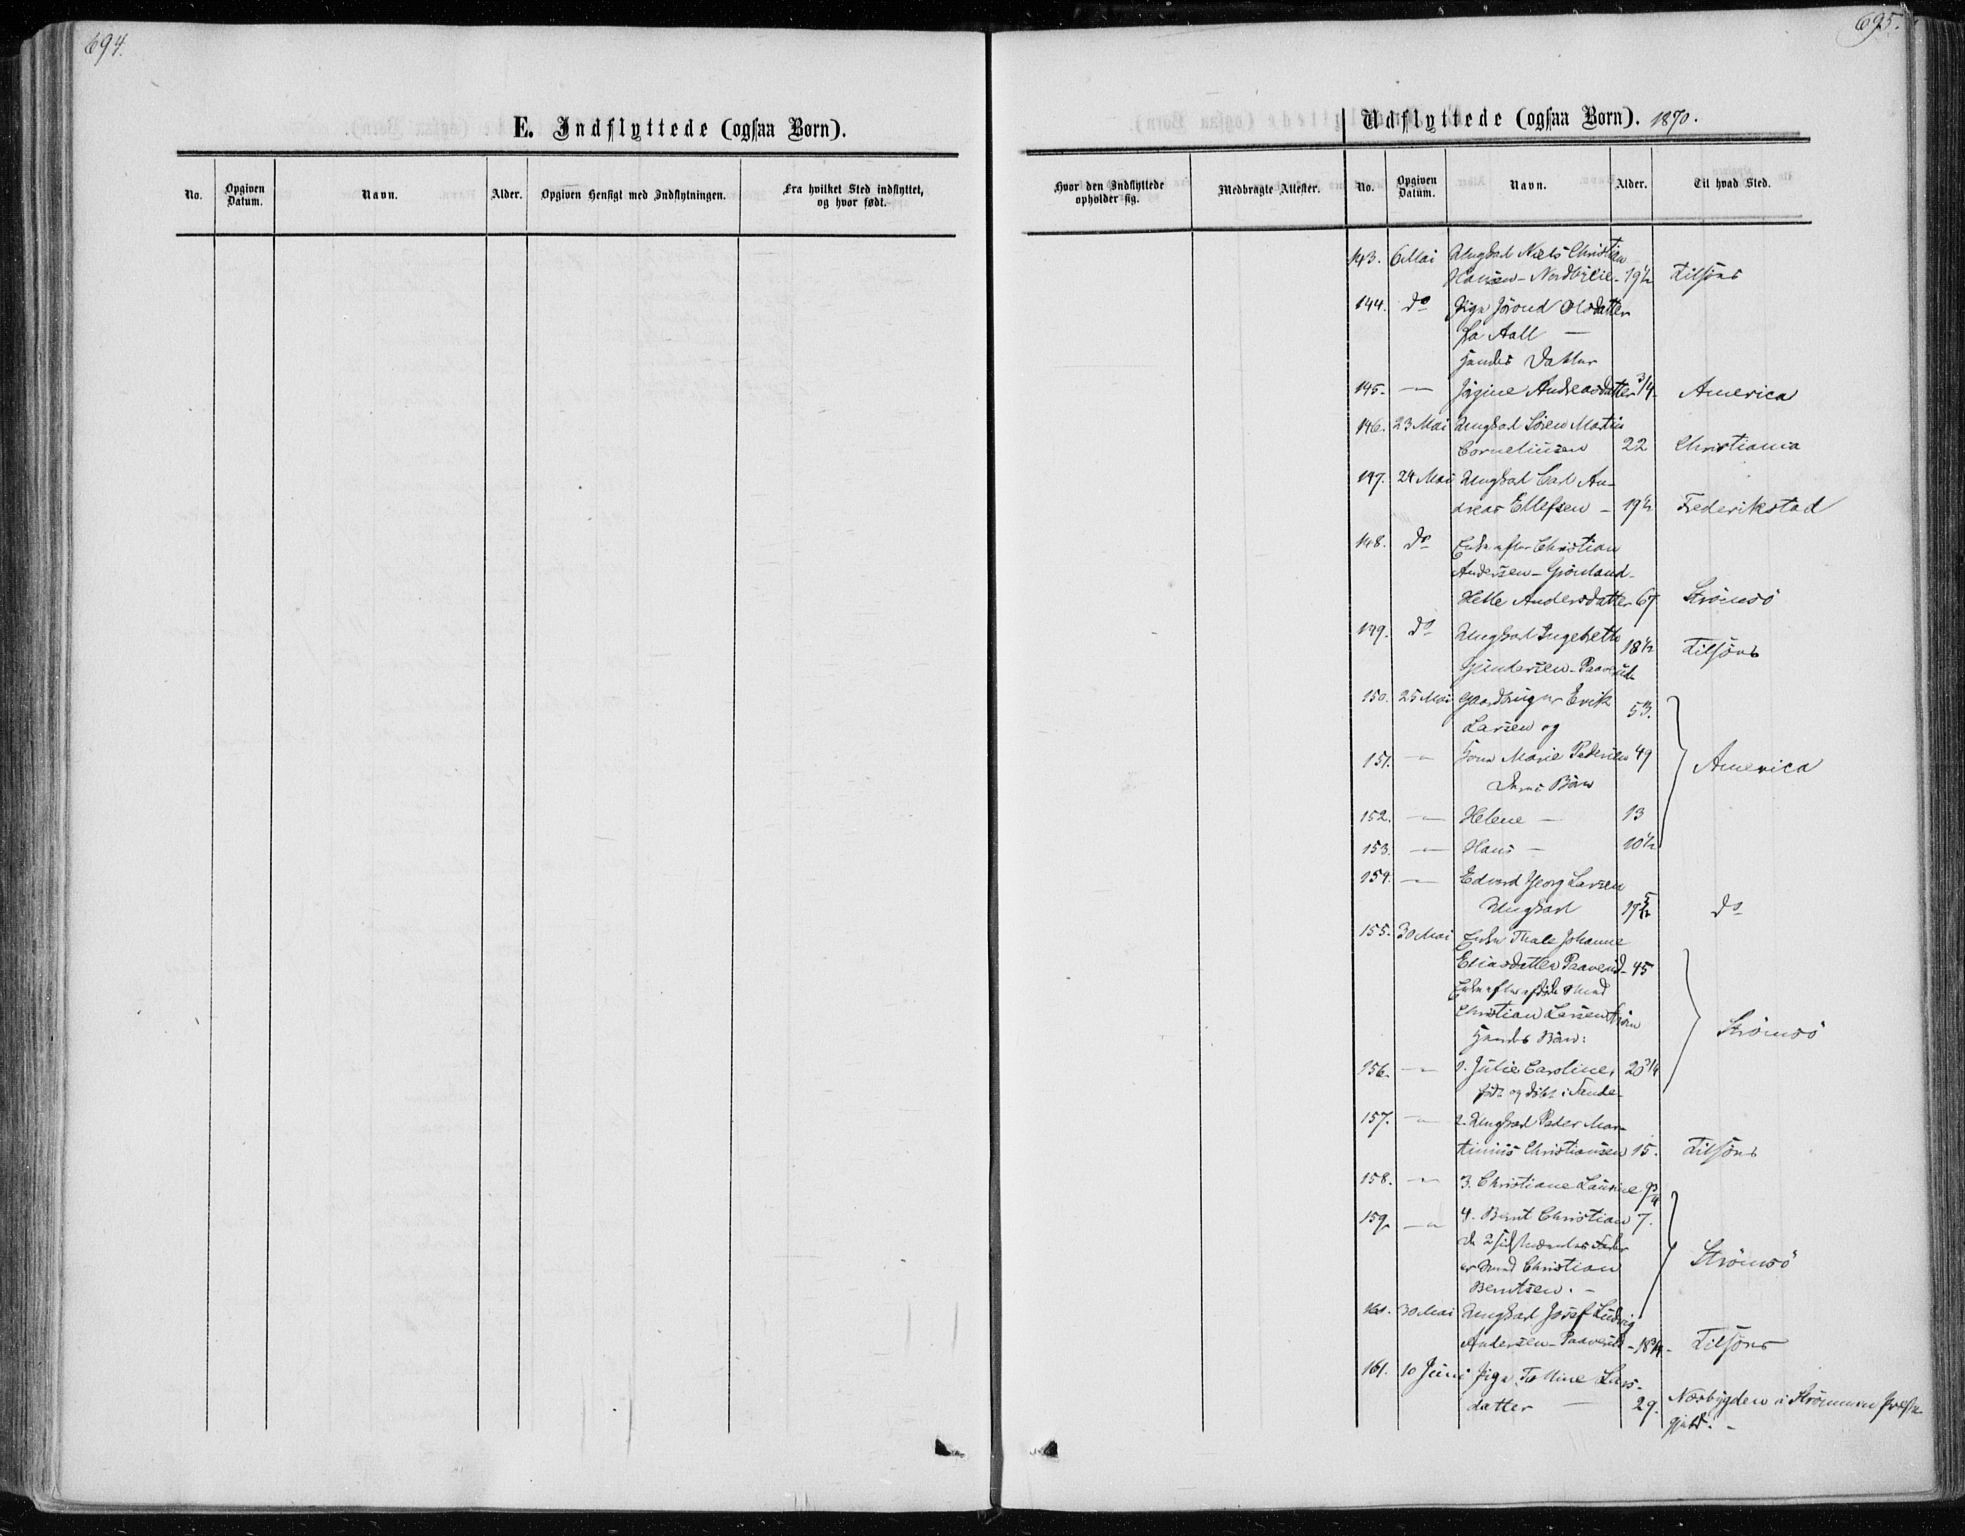 694.
695.
E. Indflyttede (ogsaa Børn).
No.
Opgiven Datum.
Navn.
Alder.
Opgiven Hensigt med Indflytningen.
Fra hvilket Sted indflyttet, og hvor født.
Udflyttede (ogsaa Børn). 1870.
Hvor den Indflyttede opholder sig.
Medbragte Attester.
No.
Opgiven Datum.
Navn.
Alder.
Til hvad Sted.
143. 6 Mai Ungkarl Niels Christian
Hansen - 19½ Tilsøes
144. do Pige Jørond Olsdatter
fra Aall —
hendes Datter
145. — Jørgine Andreasdatter 3/4. America
146. 23 Mai Ungkarl Søren Martin
Corneliusen 22 Christiania
147. 24 Mai Ungkarl Carl An-
dreas Ellefsen - 19½ Frederikstad
148. do Enke efter Christian
Andersen - Grønland -
Helle Andersdatter 67 Strømsö
149. do Ungkarl Ingebreth
Gundersen - Paaverud 18½ Tilsøes
150. 25 Mai Gaardbruger Erik
Larsen og 53.
151. — Kone Marie Pedersen 49 America
Deres Børn
152. — Helene — 13
153. — Hans — 10½
154. — Edvard Georg Larsen
Ungkarl do
155. 30 Mai Enke Thale Johanne
Eliasdatter Paaverud - 45
Enke efter afdøde Mand
Christian Larsen Strøm Strømsö
hendes Børn:
156. — 1. Julie Caroline, 20¾
født og døbt i Sande -
157. — 2. Ungkarl Peder Mar-
tinius Christiansen 15. Tilsøes
158. — 3. Christiane Laurine
159. — 4. Bernt Christian 7.
de 2 sidstnævntes Fader
er Christian Strømsö
Berntsen. -
160. 30 Mai Ungkarl Josef Ludvig
Andersen - Paaverud - 18¾ - Tilsøes
161. 10 Juni Pige Lars-
datter — 29. Næsbygden i Strømmen Præste
gjeld. -